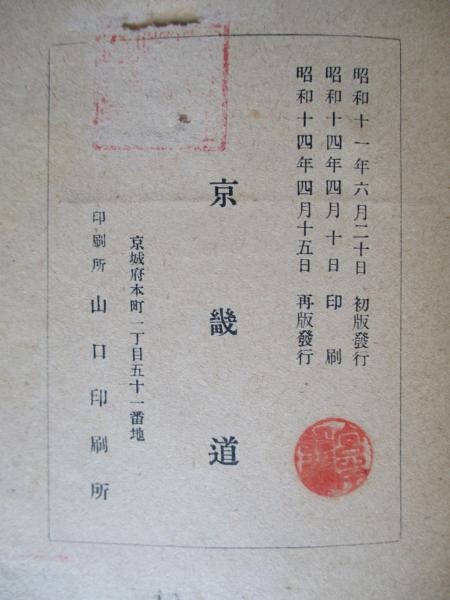 昭和十一年六月二十日 初版發行
昭和十四年四月十日 印刷
昭和十四年四月十五日 再版發行
京畿道
京城府本町二丁目五十一番地
印刷所 山口印刷所